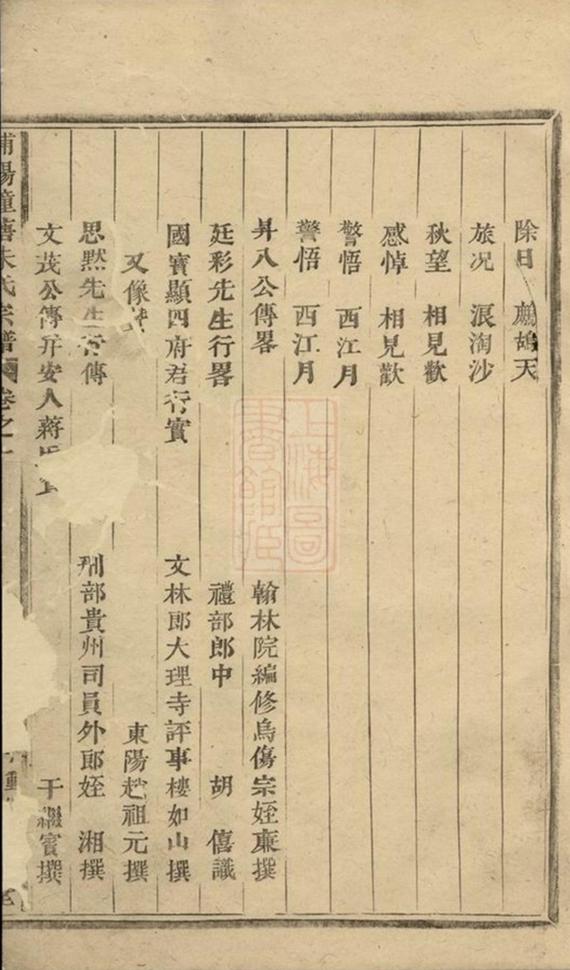 除日 鷓鴣天
旅况 浪淘沙
秋望 相見歡
感悼 相見歡
警悟 西江月
警悟 西江月
昇八公傳畧 翰林院編修烏傷宗姪廉撰
廷彩先生行畧 禮部郎中 胡 僖識
國寶顯四府君行實 文林郎大理寺評事樓如山撰
又像 東陽趙祖元撰
思默先生行傳 刑部貴州司員外郎姪 湘撰
文茂公傳并安人蔣氏 于繼實撰
浦陽 朱氏宗譜 卷之
上海圖書館藏